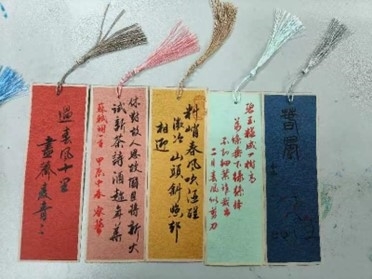 過春風十里
盡薺麥青青
休對故人思故國且將新火
試新茶詩酒趁年華
料峭春風吹酒醒
微冷山頭斜照卻
相迎
碧玉妝成一樹高
萬條垂下綠絲絛
不知細葉誰裁出
二月春風似剪刀